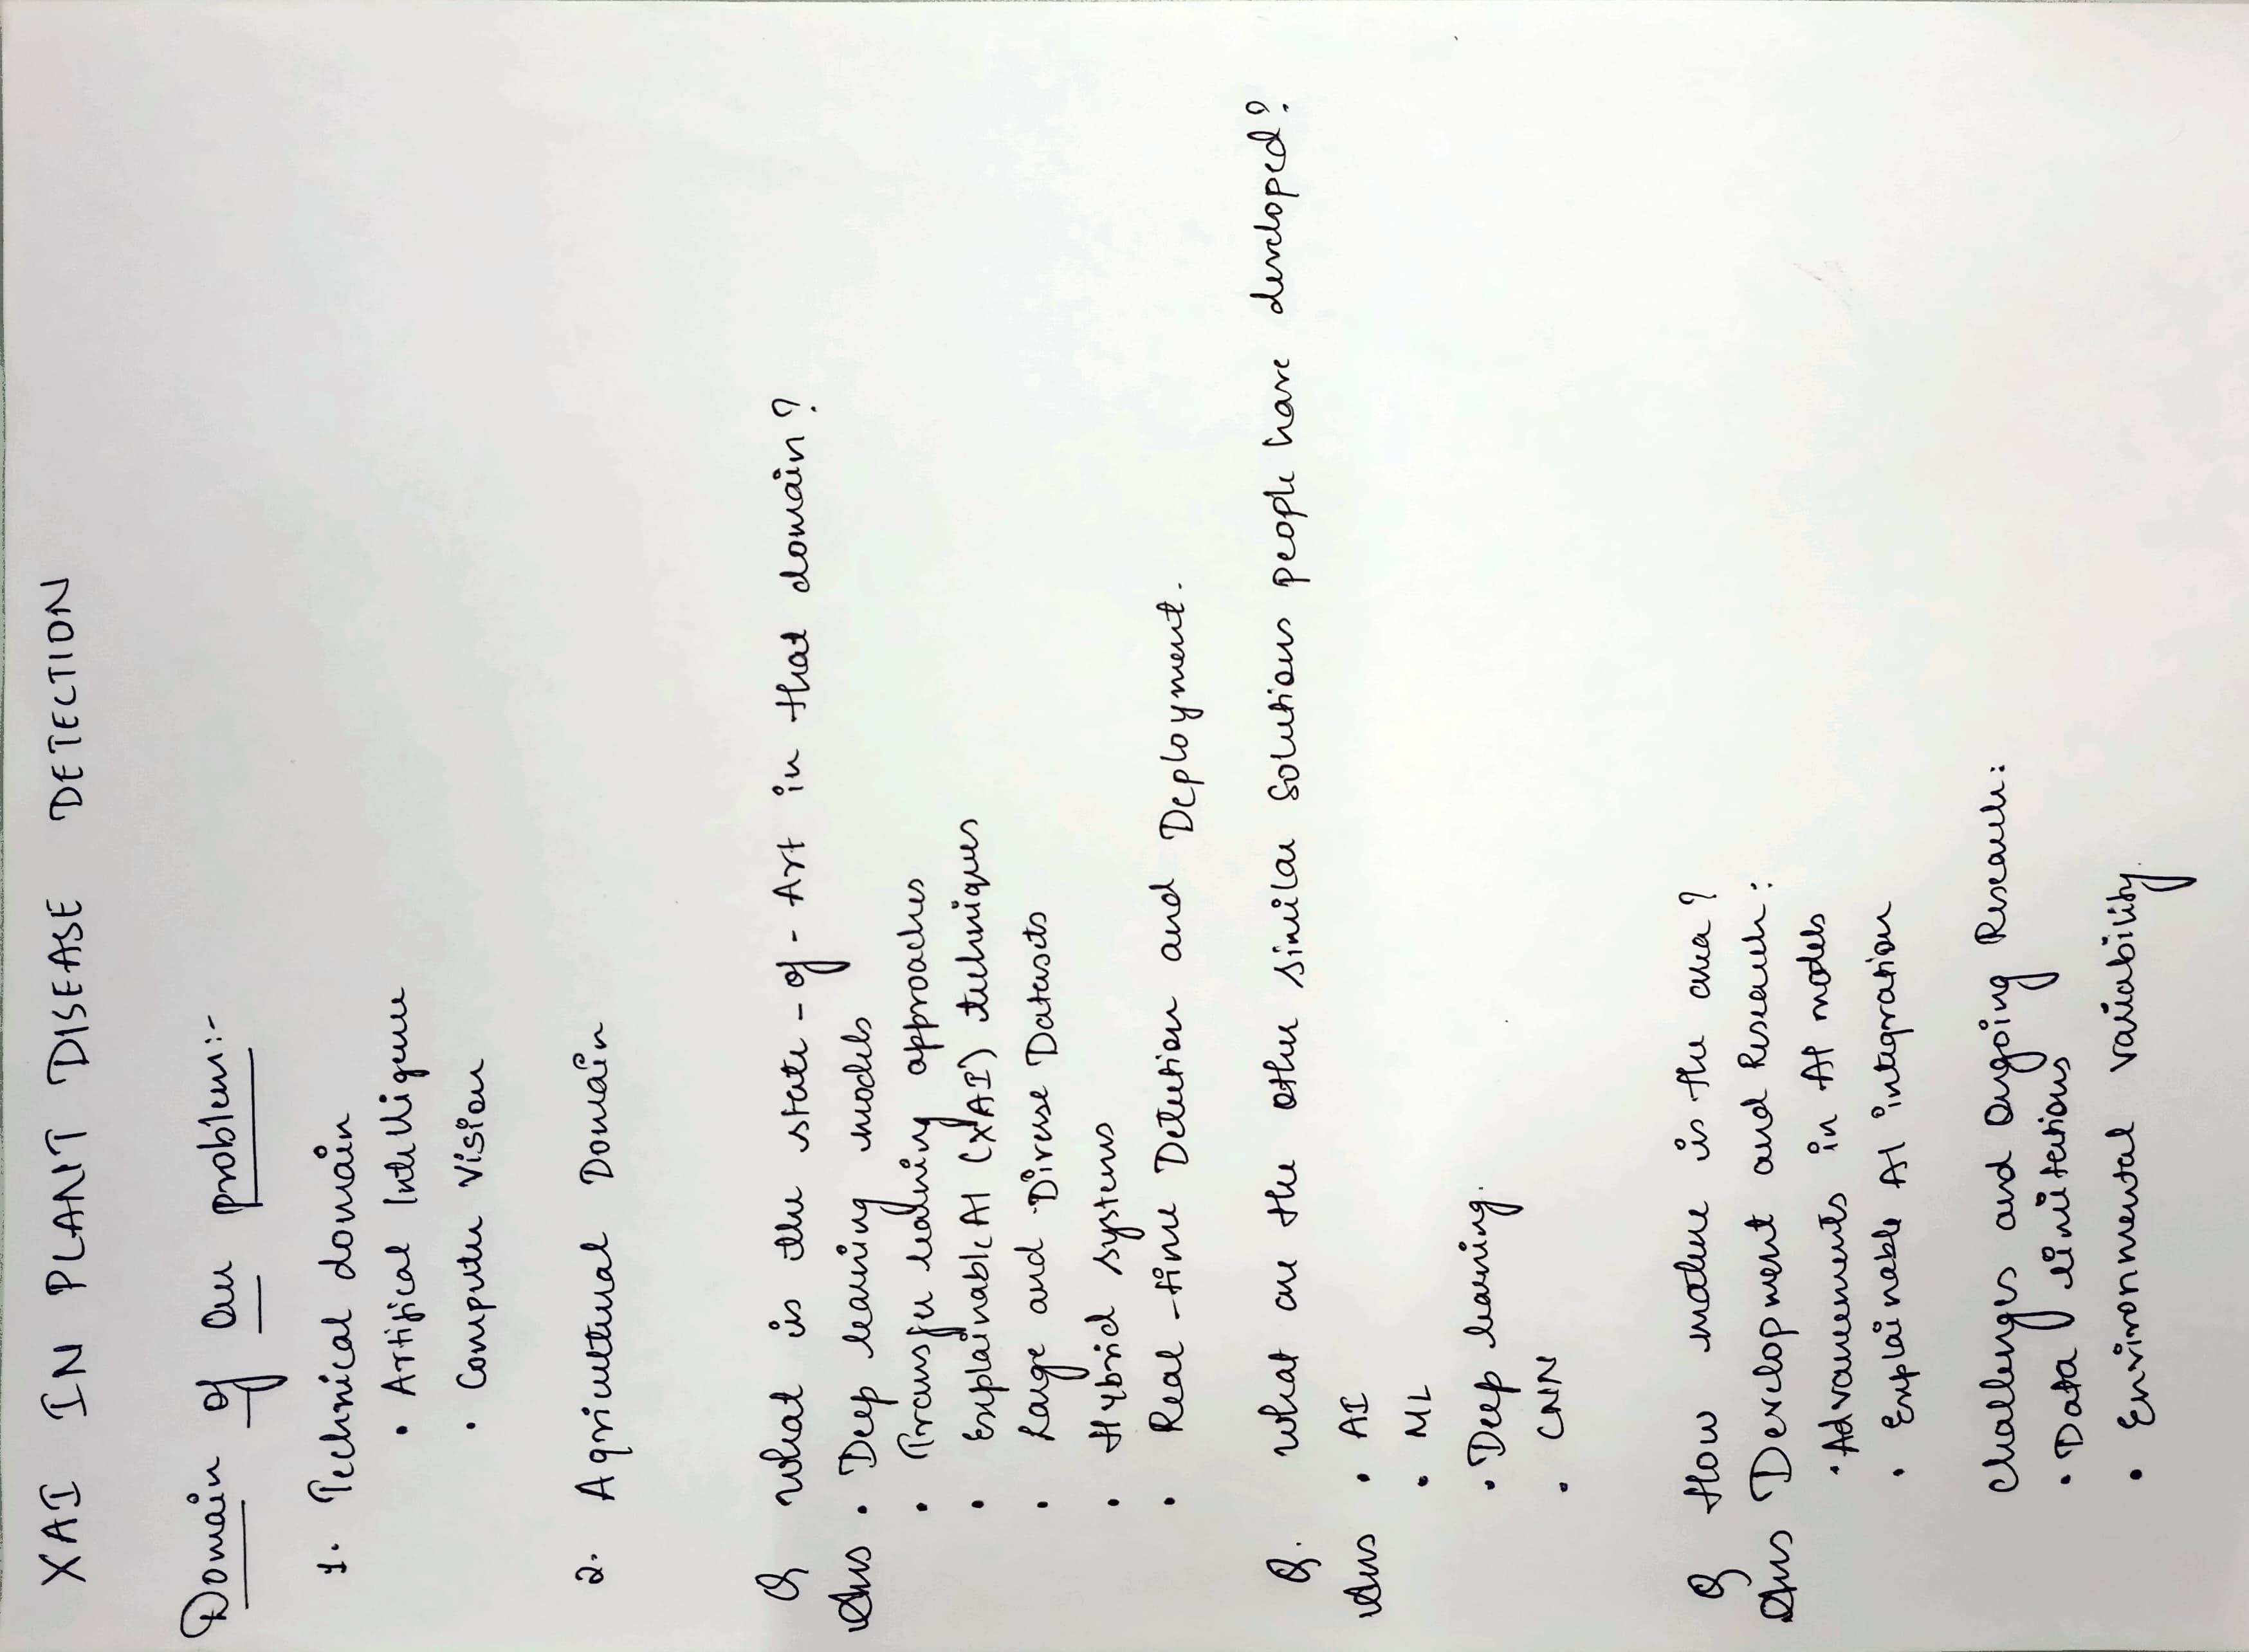 XAI IN PLANT DISEASE DETECTION
Domain of our problem:-
1. Technical domain
• Artifical Intelligence
• Computer Vision
2. Agricultural Domain
Q What is the state-of-Art in that domain?
Ans • Deep learning models
• Transfer learning approaches
• Explainable AI (XAI) techniques
• Large and Diverse Datasets
• Hybrid systems
• Real-time Detection and Deployment.
Q. What are the other similar solutions people have developed?
Ans • AI
• ML
• Deep learning.
• CNN
Q How mature is the area?
Ans Development and Research:
• Advancements in AI models
• Explainable AI integration
Challenges and Ongoing Research:
• Data limitations
• Environmental variability.